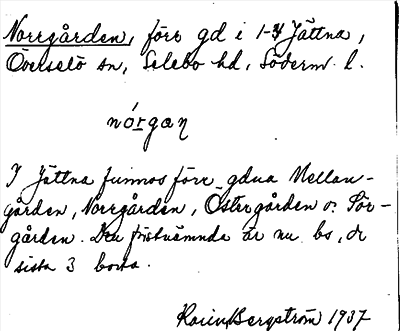 Norrgården, förr gd i 1-4 Jättna,
Överselö sn, Selebo hd, Söderm. l.
nórgan
I Jättna funnos förr gdna Mellan-
gården, Norrgården, Östergården o. Sör-
gården. Den förstnämnda är nu bs, de
sista 3 borta.
Karin Bergström 1937